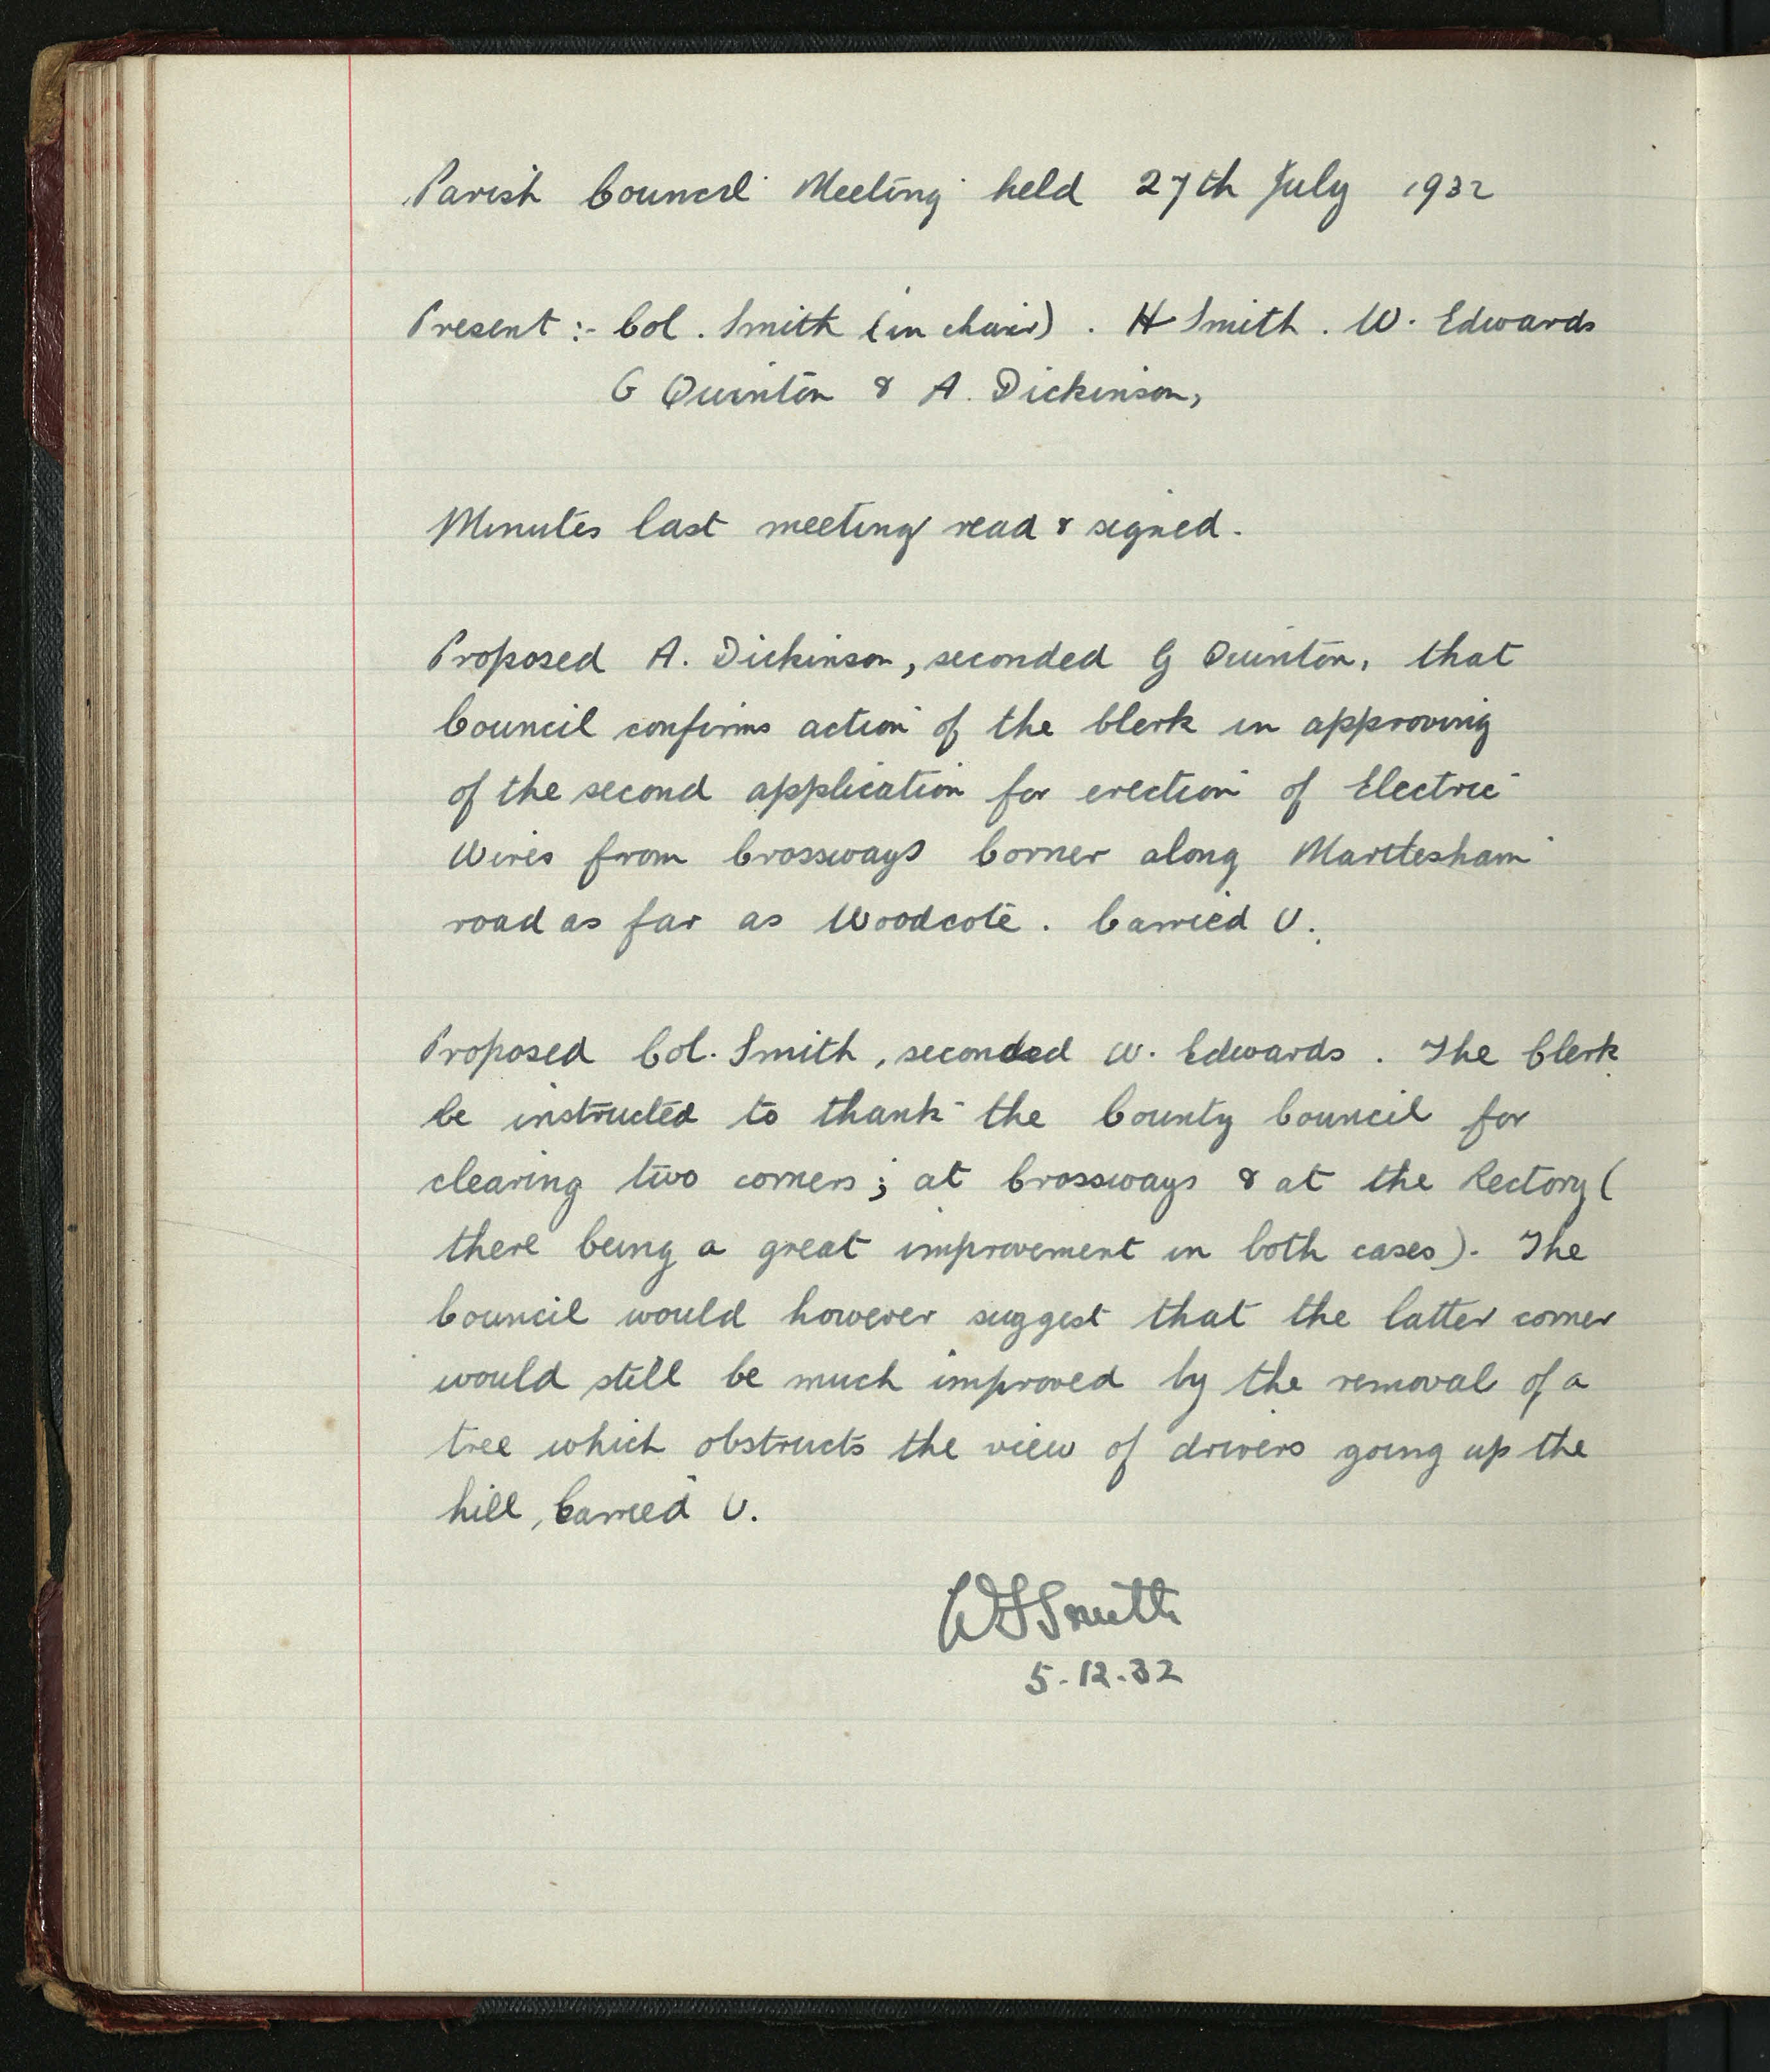 Parish Council Meeting held 27th July 1932
Present :- Col. Smith (in chair). H Smith. W. Edwards
G Quinton & A. Dickinson,
Minutes last meeting read & signed.
Proposed A. Dickinson, seconded G Quinton, that
Council confirms action of the Clerk in approving
of the second application for erection of Electric
Wires from Crossways Corner along Martlesham
road as far as Woodcote. Carried U.
Proposed Col. Smith, seconded W. Edwards. The Clerk
be instructed to thank the County Council for
clearing two corners; at Crossways & at the Rectory (
there being a great improvement in both cases). The
Council would however suggest that the latter corner
would still be much improved by the removal of a
tree which obstructs the view of drivers going up the
hill, Carried U.
W F Smith
5-12-32